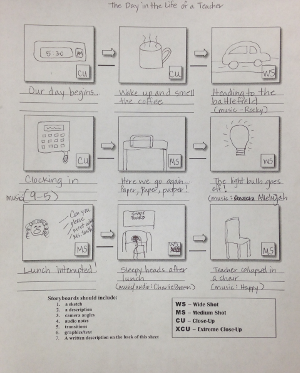 The Day in the Life of a Teacher
5:30
CU
CU
WS
Our day begins...
Wake up and smell
the coffee
Heading to the
battlefield
(music - Rocky)
CU
MS
CU
Clocking in
music (9-5)
Here we go again
Paper, Paper, paper!
The light bulb goes
off!
Can you
please
MS
MS
MS
Lunch interrupted!
Sleepy heads after
lunch
Teacher collapsed in
a chair
(music: Happy)
Storyboards should include:
1. a sketch
2. a description
3. camera angles
4. audio notes
5. transitions
6. graphics/text
7. A written description on the back of this sheet
WS – Wide Shot
MS – Medium Shot
CU – Close-Up
XCU – Extreme Close-Up